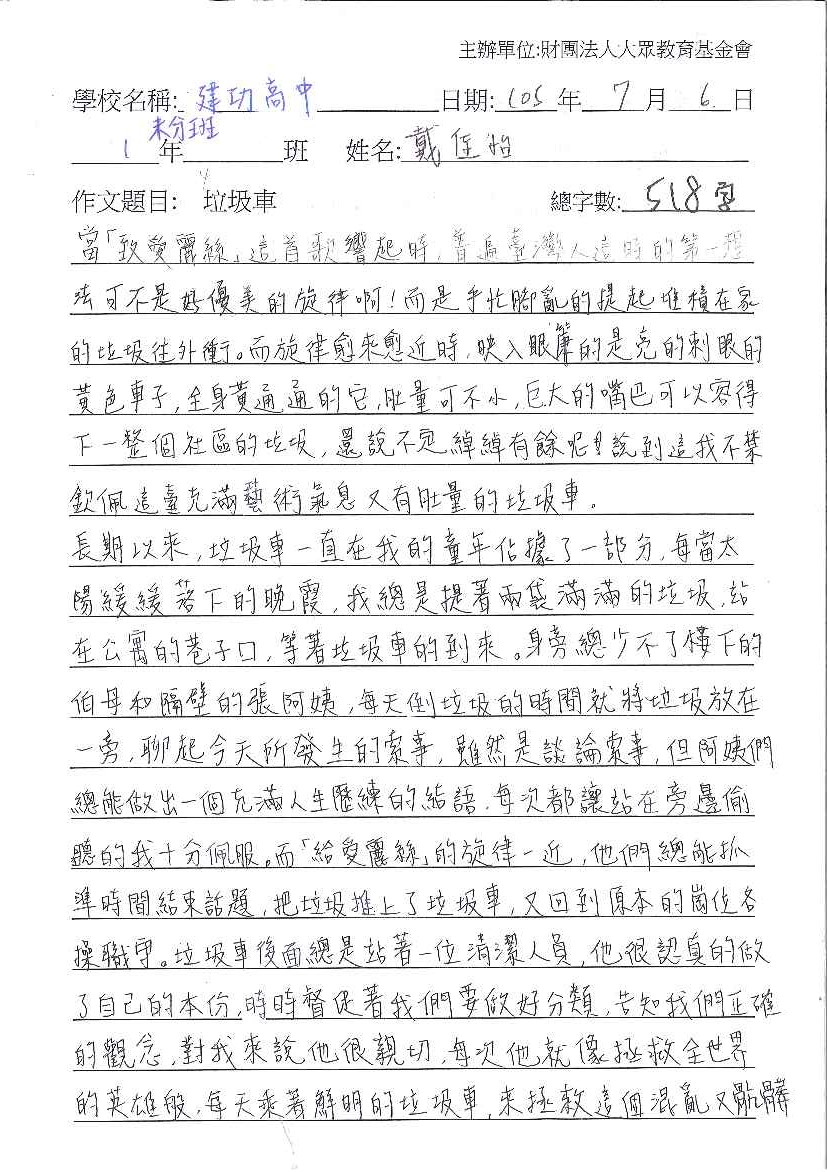 主辦單位:財團法人大眾教育基金會
學校名稱: 建功高中 日期: 105 年 7 月 6 日
未分班
1 年 班 姓名: 戴 怡
作文題目: 垃圾車 總字數: 518字
當「致愛麗絲」這首歌響起時,普遍臺灣人這時的第一想
法可不是好優美的旋律啊!而是手忙腳亂的提起堆積在家
的垃圾往外衝。而旋律愈來愈近時,映入眼簾的是亮的刺眼的
黃色車子,全身黃通通的它,肚量可不小,巨大的嘴巴可以容得
下一整個社區的垃圾,還說不定綽綽有餘呢!說到這我不禁
欽佩這臺充滿藝術氣息又有肚量的垃圾車。
長期以來,垃圾車一直在我的童年佔據了一部分,每當太
陽緩緩落下的晚霞,我總是提著兩袋滿滿的垃圾,站
在公寓的巷子口,等著垃圾車的到來。身旁總少不了樓下的
伯母和隔壁的張阿姨,每天倒垃圾的時間就將垃圾放在
一旁,聊起今天所發生的索事,雖然是談論索事,但阿姨們
總能做出一個充滿人生歷練的結語,每次都讓站在旁邊偷
聽的我十分佩服。而「給愛麗絲」的旋律一近,他們總能抓
準時間結束話題,把垃圾推上了垃圾車,又回到原本的崗位各
操職守。垃圾車後面總是站著一位清潔人員,他很認真的做
了自己的本份,時時督促著我們要做好分類,告知我們正確
的觀念,對我來說他很親切,每次他就像拯救全世界
的英雄般,每天乘著鮮明的垃圾車,來拯救這個混亂又骯髒